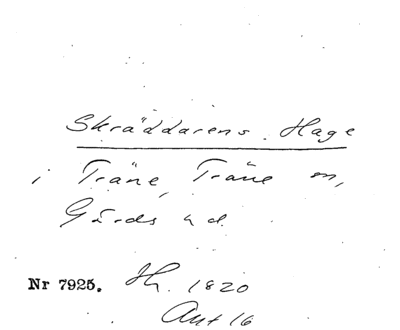 Skräddarens Hage
i Träne, Träne sn,
Gärds hd.
Nr 7925. Hh. 1820
Akt 16